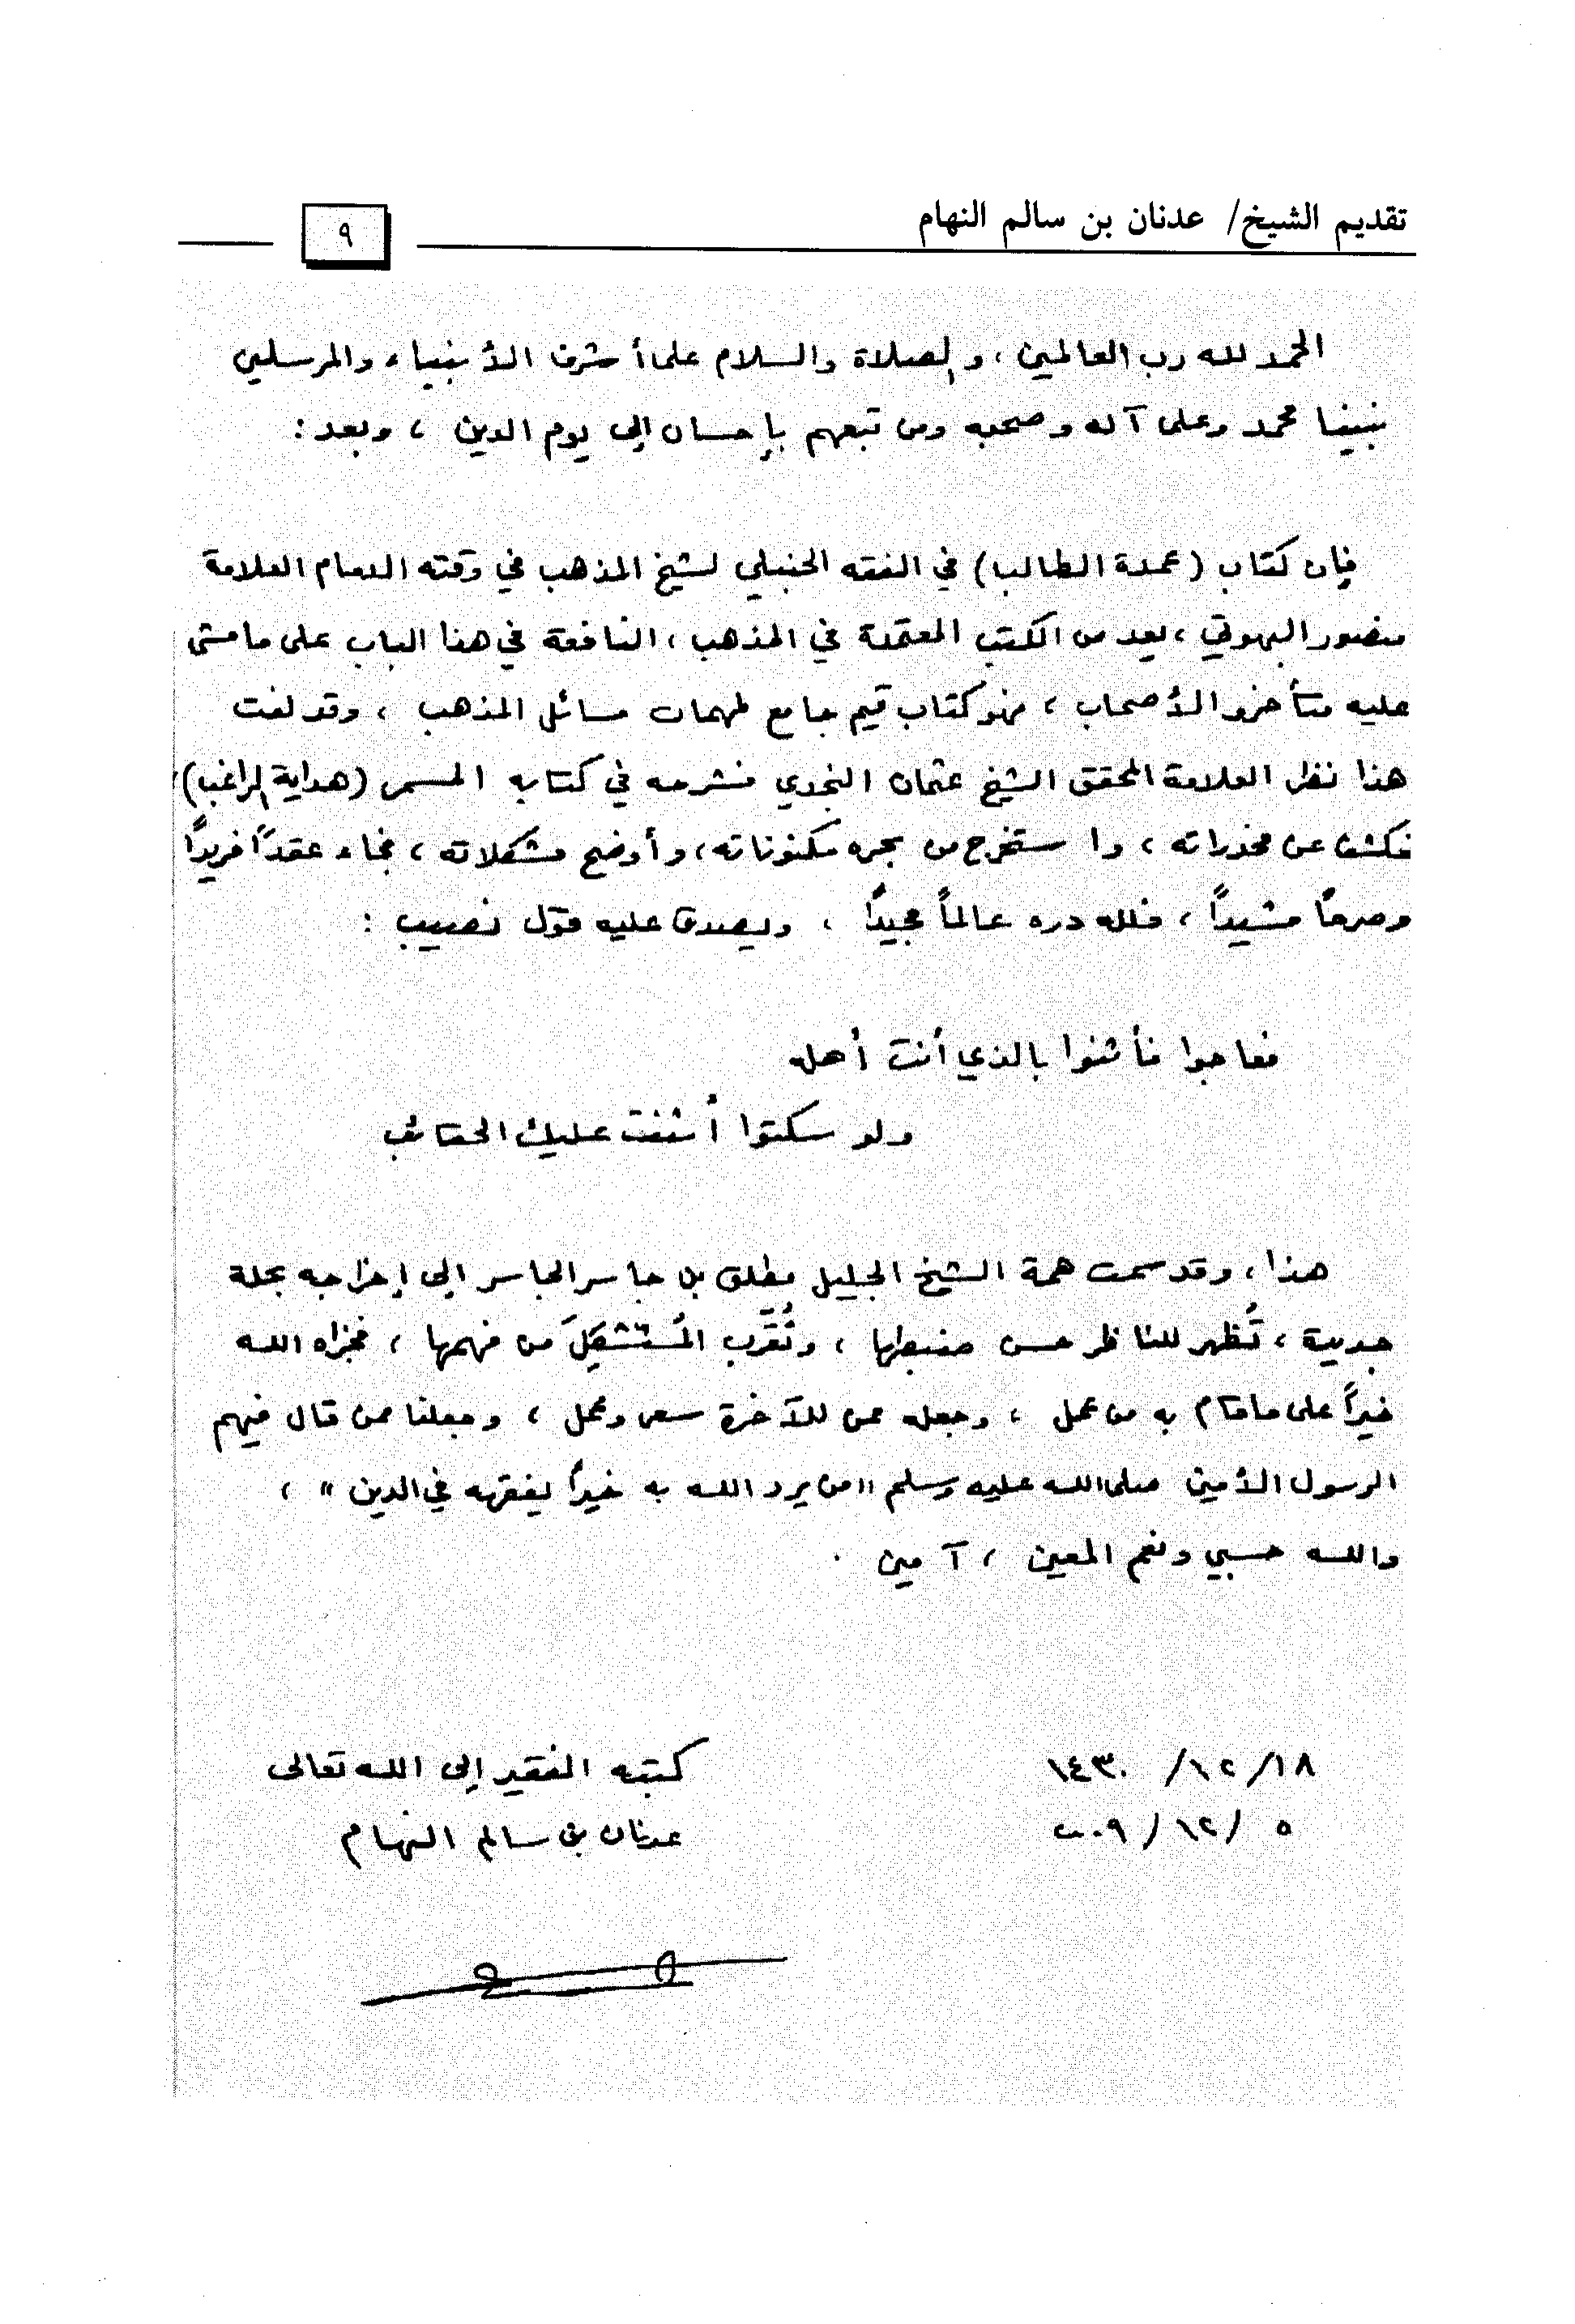 تقديم الشيخ/ عدنان بن سالم النهام
٩
الحمد لله رب العالمين ، والصلاة والسلام على أشرف الأنبياء والمرسلين
نبينا محمد وعلى آله وصحبه ومن تبعهم بإحسان إلى يوم الدين ، وبعد :
فإن كتاب (عمدة الطالب) في الفقه الحنبلي لشيخ المذهب في وقته الامام العلامة
منصور البهوتي ، يعد من الكتب المعتمدة في المذهب ، النافعة في هذا الباب على ما مشى
عليه متأخرو الأصحاب ، فهو كتاب قيم جامع لمهمات مسائل المذهب ، وقد لفت
هذا نظر العلامة المحقق الشيخ عثمان النجدي فشرحه في كتابه المسمى (هداية الراغب)،
فكشف عن مخدراته ، واستخرج من بحره مكنوناته ، وأوضح مشكلاته ، فجاء عقدًا فريدًا
وصرحًا مشيدًا ، فلله دره عالمًا مجيدًا ، ويصدق عليه قول نصيب :
فعاجوا فأثنوا بالذي أنت أهله
ولو سكتوا أثنت عليك الحقائب
هذا ، وقد سمت همة الشيخ الجليل مطلق بن جاسر الجاسر إلى إخراجه بحلة
جديدة ، تُظهر للناظر حسن ضبطها ، وتُقرّب المُستشكِلَ من فهمها ، فجزاه الله
خيرًا على ما قام به من عمل ، وجعله ممن للآخرة سعى وعمل ، وجعلنا ممن قال فيهم
الرسول الأمين صلى الله عليه وسلم "من يرد الله به خيرًا يفقهه في الدين" ،
والله حسبي ونعم المعين ، آمين .
١٨/ ١٢/ ١٤٣٠ كتبه الفقير إلى الله تعالى
٥ / ١٢/ ٢٠٠٩ عدنان بن سالم النهام